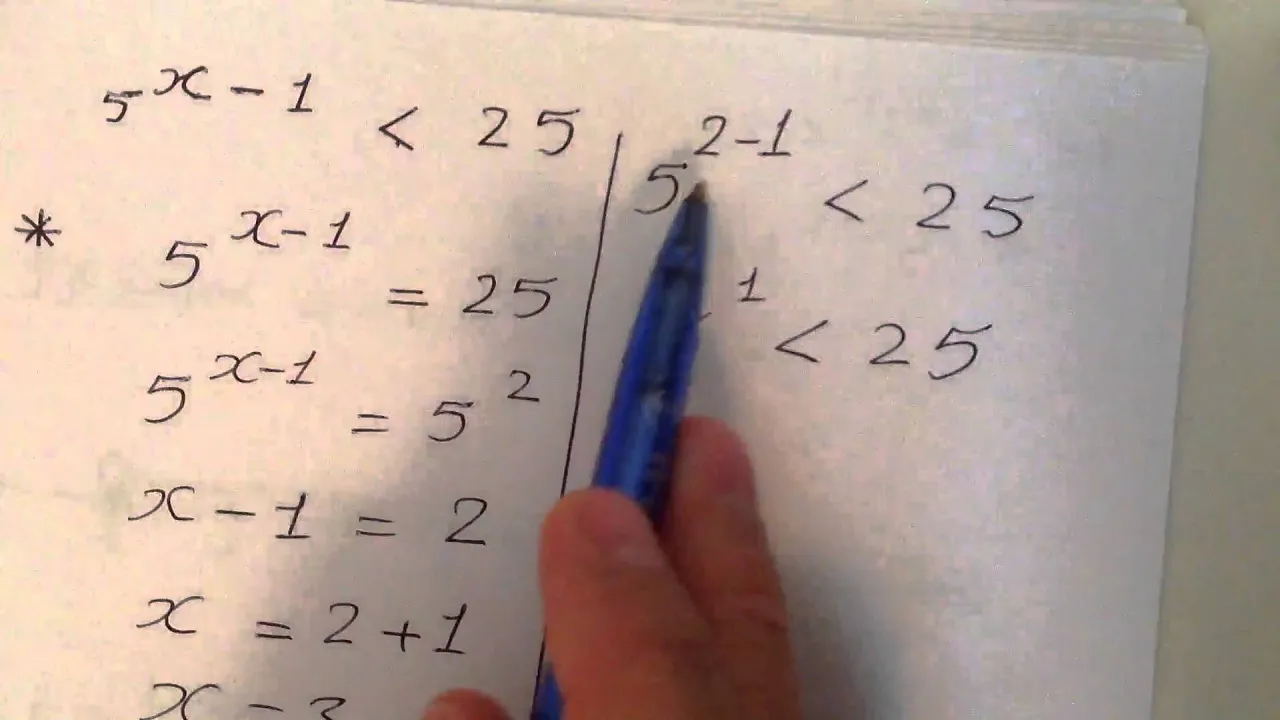 5^x-1 < 25
* 5^x-1 = 25
5^x-1 = 5^2
x-1 = 2
x = 2+1
x = 3
5^2-1 < 25
1 < 25